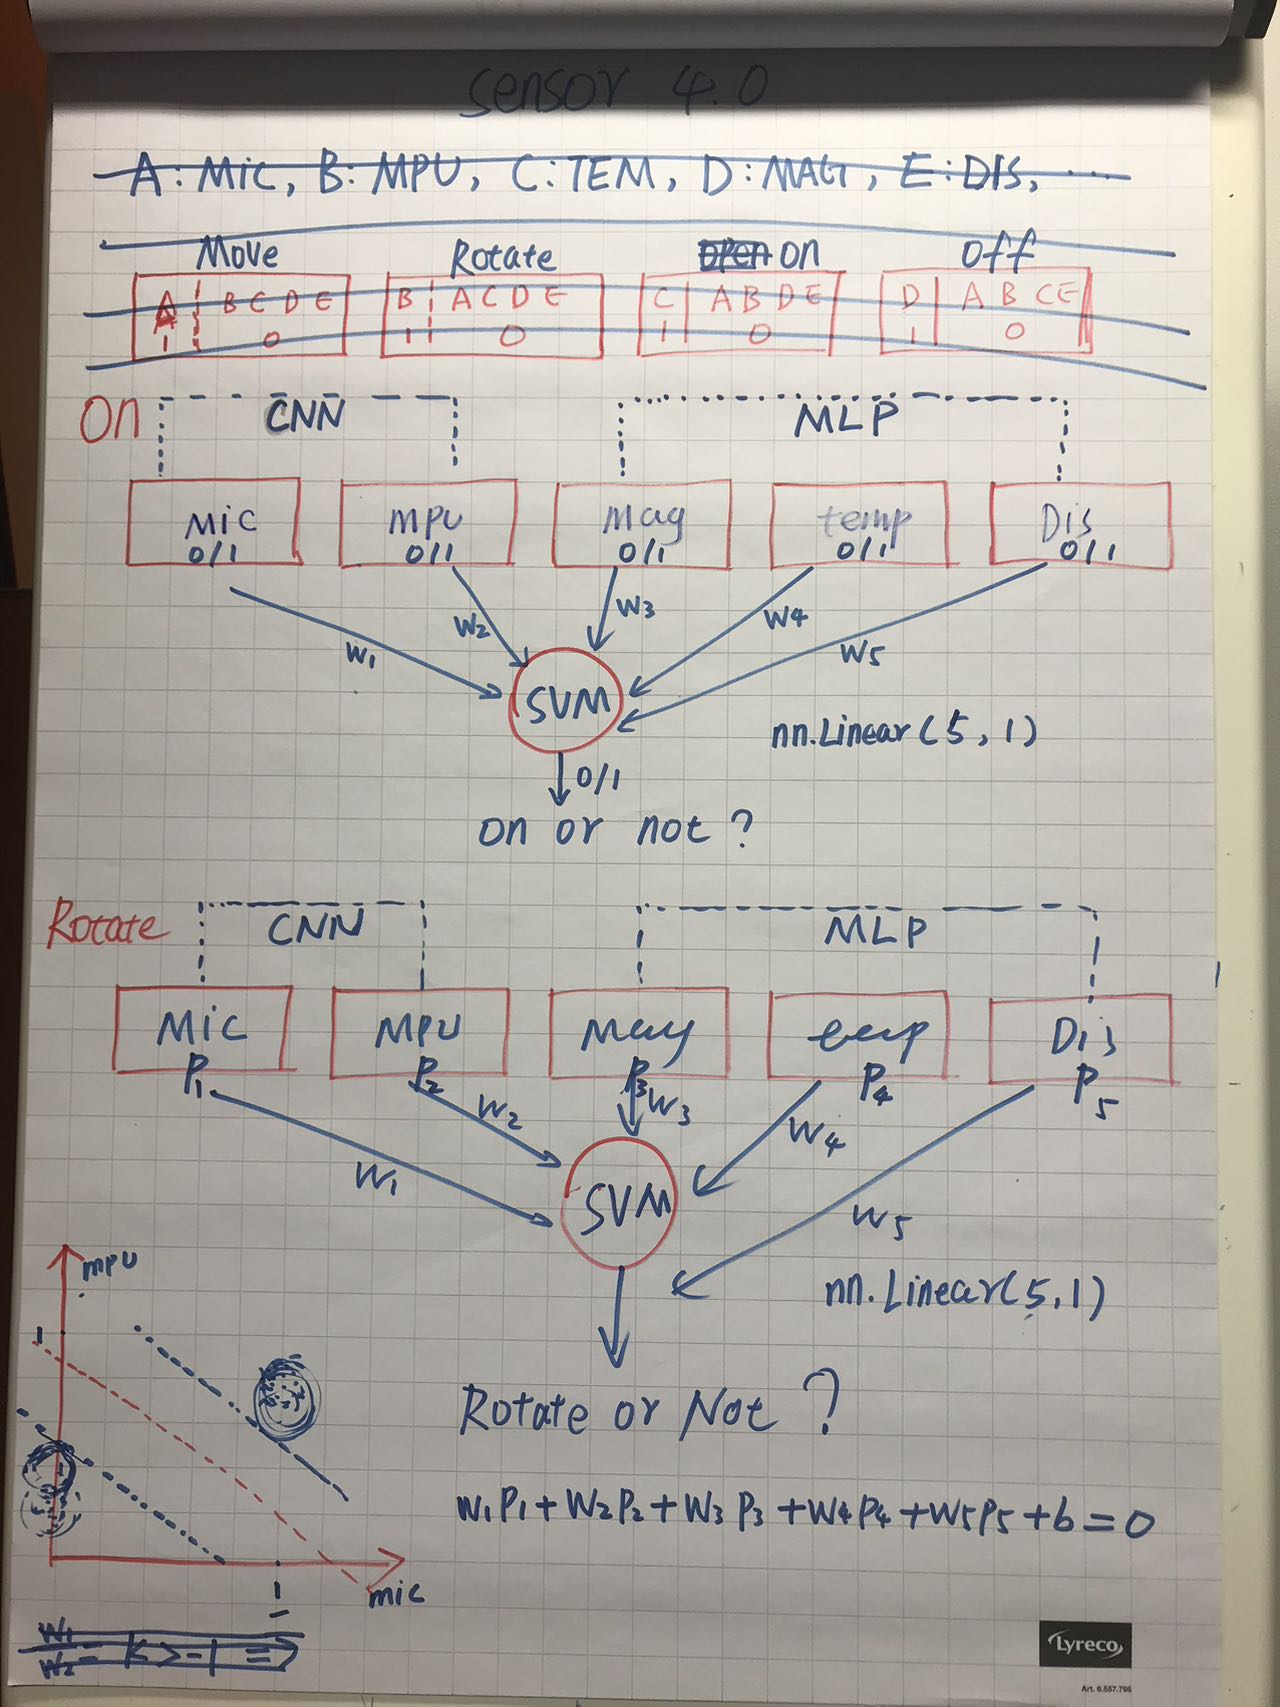 sensor 4.0
A: MiC, B: MPU, C: TEM, D: MAG, E: DIS, ....
Move Rotate OPEN ON Off
A B C D E B A C D E C A B D E D A B C E
1 0 1 0 1 0 1 0
ON CNN MLP
MiC mpu Mag temp Dis
0/1 0/1 0/1 0/1 0/1
W1 W2 W3 W4 W5
SVM
nn.Linear(5,1)
0/1
on or not?
Rotate CNN MLP
MiC MPU Mag temp Dis
P1 P2 P3 P4 P5
W1 W2 W3 W4 W5
SVM
nn.Linear(5,1)
mpu
1
Rotate or Not?
W1P1+W2P2+W3P3+W4P4+W5P5+b=0
1
mic
W1
W2
Lyreco
Art. 6.557.798